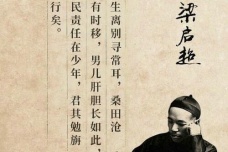 梁启超
生离别寻常耳，桑田沧
有时移，男儿肝胆长如此，
民责任在少年，君其勉旃
行矣。